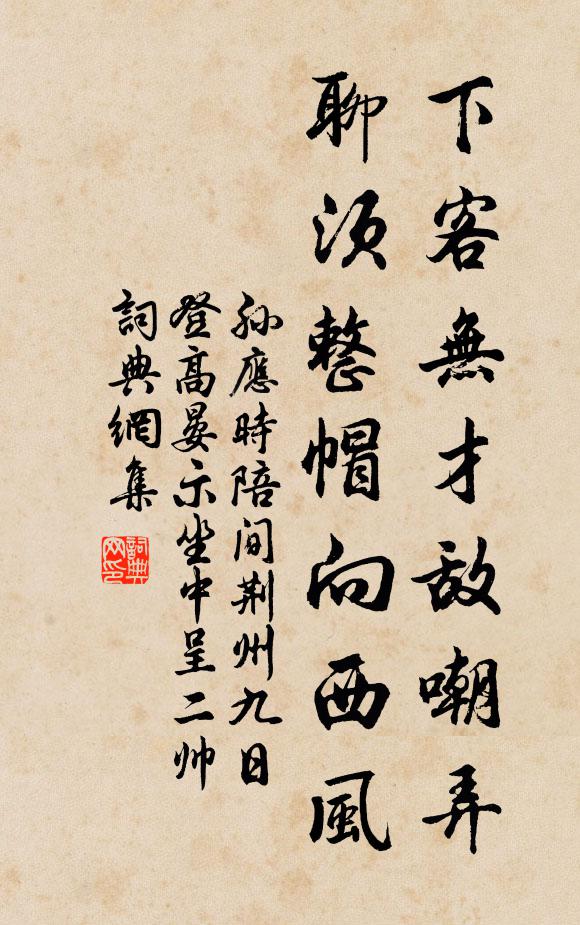 下客無才敵嘲弄
聊須整帽向西風
孫應時陪間荆州九日
登高晏示坐中呈二帅
詞典網集
詞典
网印